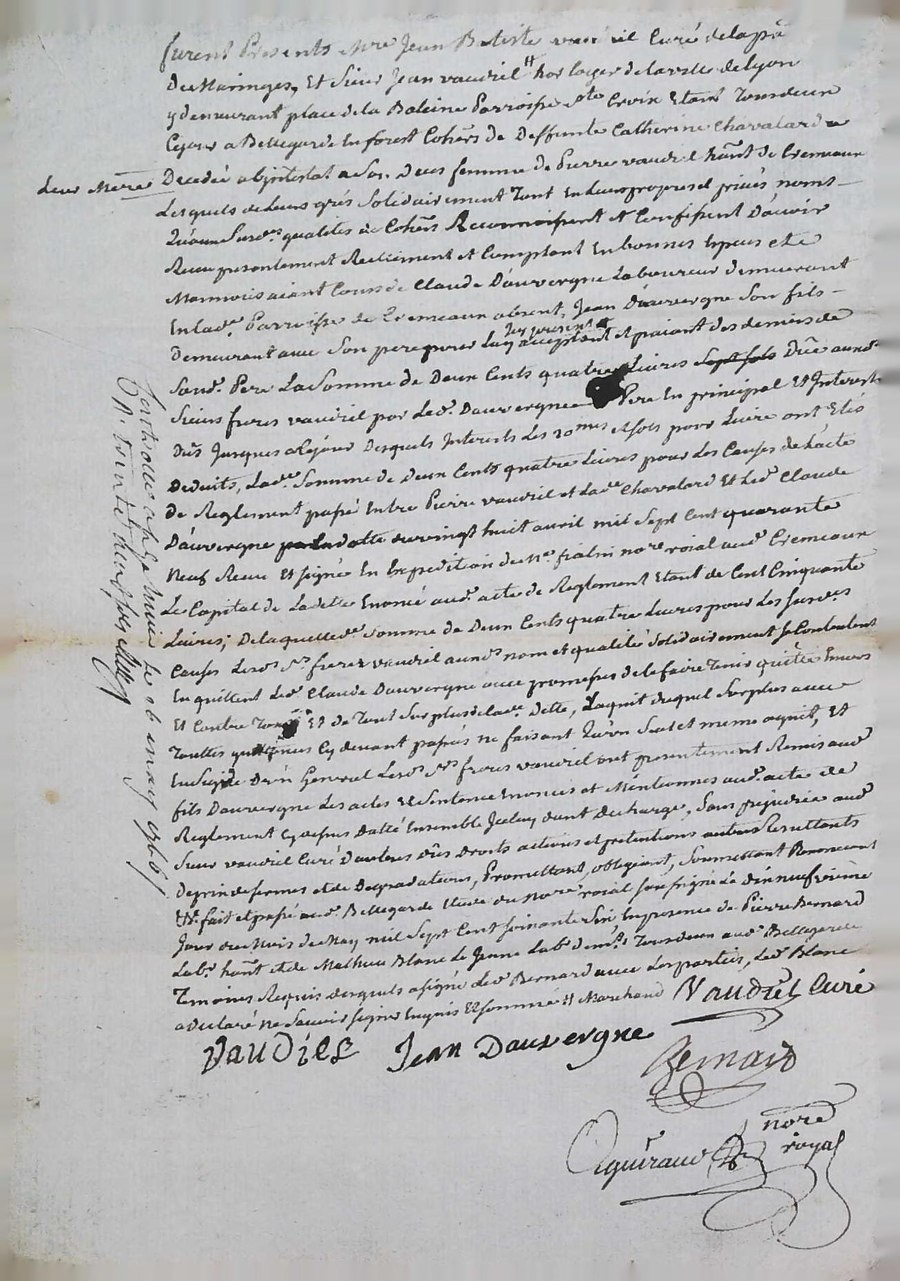 furent Presents mre Jean Batiste vaudiel Curé de la pse
De Maringes, Et Sieur Jean vaudiel # horloger de la ville de Lyon
y demeurant place de la Baleine Parroisse ste Croix Etant Tous deux
Ce jour a Bellegarde En forest Cohers de Deffunte Catherine Chavalard
Leur Mere Decedée abjntestat a Son Deces femme de Pierre vaudiel hant de Cremeaux
Lesquels de Leurs grés Solidairement Tant En Leurs propres et privés noms
qualites de Cohers Reconnoissent et Confessent D'avoir
Receu presentement Reellement et Comptant En bonnes Especes et de
Monnoie aiant Cours de Claude Dauvergne Laboureur demeurant
En lade Parroisse de Cremeaux absent, Jean Dauvergne Son fils
demeurant avec Son pere pour Luy acceptant et paiant des deniers de
Sond. Pere La Somme de Deux Cents quatre Livres Sept sols Düe auxd.
Sieurs freres vaudiel par Led. Dauvergne Pere En principal Et Interests
Dus Jusques a Ce jour Desquels Interests Les 20mes et sols pour Livre ont Etés
Deduits, Lade Somme de Deux Cents quatre Livres pour Les Causes de L'acte
De Reglement passé Entre Pierre vaudiel et Lade Chavalard Et Led. Claude
Dauvergne du vingt huit avril mil Sept Cent quarante
Neuf Receu Et signé En Expedition de Me fialin nore roial aud. Cremeaux
Le Capital de La dette Enoncé aud. acte de Reglement Etant de Cent Cinquante
Livres; De laquelle de Somme de Deux Cents quatre Livres pour Les Susd.
Causes Lesd. Srs freres vaudiel auxd. nom et qualité Solidairement Se Contentent
En quittent Led. Claude Dauvergne avec promesses de le faire Tenir quitte Envers
Et Contre Tous Et de Tout Surplus de lade Dette, Laquit duquel Surplus avec
Touttes quittances Cy devant passés ne faisant qu'un Seul et meme aquit, Et
En Signe D'un General Lesd. Srs freres vaudiel ont presentement Remis aud.
fils Dauvergne Les actes Et Sentence Enonces et Mentionnes aud. acte de
Reglement Cy dessus Datté Ensemble Jceluy dont decharge, Sans prejudice aud.
Sieur vaudiel Curé D'autres Dûs Droits actions et pretentions Resultants
De prix de fermes et de Degradations, Promettant, obligeant, Soumettant Renoncant
fait et passé aud. Bellegarde Etude du Nore roial Soussigné Le dixneufvieme
Jour du Mois de May mil Sept Cent soixante Six En presence de Pierre Bernard
Labr. hant et de Mathieu Blanc Le Jeune Labr. Tous deux aud. Bellegarde
Temoins Requis desquels a signé Led. Bernard avec Les parties, Led. Blanc
a Declaré ne Savoir signer Enquis Et sommé # Marchand Vaudiel Curé
Vaudiel Jean Dauvergne
Bernard
nore
royal